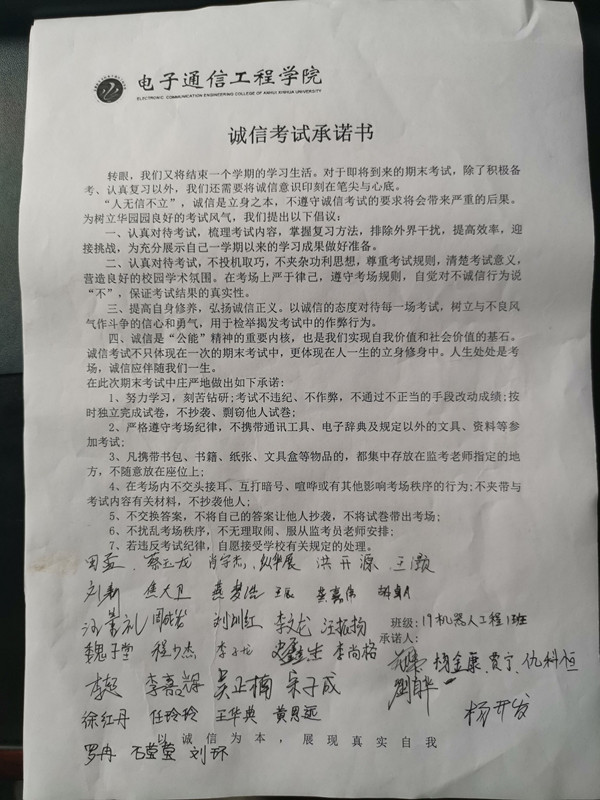 电子通信工程学院
ELECTRONIC COMMUNICATION ENGINEERING COLLEGE OF ANHUI XINHUA UNIVERSITY
诚信考试承诺书
转眼，我们又将结束一个学期的学习生活。对于即将到来的期末考试，除了积极备
考、认真复习以外，我们还需要将诚信意识印刻在笔尖与心底。
“人无信不立”，诚信是立身之本，不遵守诚信考试的要求将会带来严重的后果。
为树立华园园良好的考试风气，我们提出以下倡议：
一、认真对待考试，梳理考试内容，掌握复习方法，排除外界干扰，提高效率，迎
接挑战，为充分展示自己一学期以来的学习成果做好准备。
二、认真对待考试，不投机取巧，不夹杂功利思想，尊重考试规则，清楚考试意义，
营造良好的校园学术氛围。在考场上严于律己，遵守考场规则，自觉对不诚信行为说
“不”，保证考试结果的真实性。
三、提高自身修养，弘扬诚信正义。以诚信的态度对待每一场考试，树立与不良风
气作斗争的信心和勇气，用于检举揭发考试中的作弊行为。
四、诚信是“公能”精神的重要内核，也是我们实现自我价值和社会价值的基石。
诚信考试不只体现在一次的期末考试中，更体现在人一生的立身修身中。人生处处是考
场，诚信应伴随我们一生。
在此次期末考试中庄严地做出如下承诺:
1、努力学习，刻苦钻研;考试不违纪、不作弊，不通过不正当的手段改动成绩;按
时独立完成试卷，不抄袭、剽窃他人试卷;
2、严格遵守考场纪律，不携带通讯工具、电子辞典及规定以外的文具、资料等参
加考试;
3、凡携带书包、书籍、纸张、文具盒等物品的，都集中存放在监考老师指定的地
方，不随意放在座位上;
4、在考场内不交头接耳、互打暗号、喧哗或有其他影响考场秩序的行为;不夹带与
考试内容有关材料，不抄袭他人;
5、不交换答案，不将自己的答案让他人抄袭，不将试卷带出考场;
6、不扰乱考场秩序，不无理取闹、服从监考员老师安排;
7、若违反考试纪律，自愿接受学校有关规定的处理。
田孟 蔡玉龙 洪开源 王灏
焦大卫
周成岩 刘训红 李文龙 汪振扬 班级: 19机器人工程1班
承诺人:
魏子堂 程少杰 李子龙 李尚格 杨金康 贾宁 仇科恒
李超 李嘉辉 吴正楠 宋子成
杨开发
徐红丹 任玲玲 王华典 黄恩远
以诚信为本，展现真实自我
罗冉 石莹莹 刘环